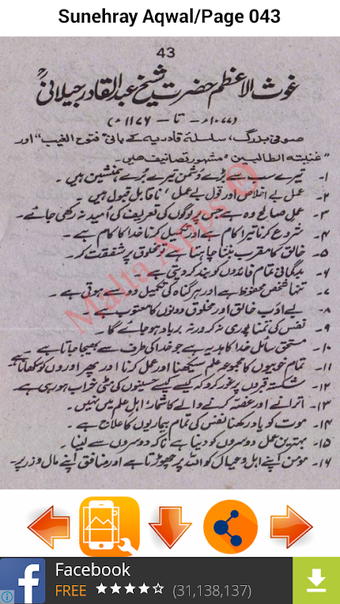 Sunehray Aqwal/Page 043
43
غوث الاعظم حضرت شیخ عبدالقادر جیلانیؒ
(۱۰۷۷ء - تا - ۱۱۶۶ء)
صوفی بزرگ، سلسلہ قادریہ کے بانی "فتوح الغیب" اور
"غنیتہ الطالبین" مشہور تصانیف ھیں۔
۱- تیرے سب سے بڑے دشمن تیرے بُرے ہم نشین ہیں۔
۲- عمل بے اخلاص اور قول بے عمل ناقابل قبول ہیں۔
۳- عمل صالح وہ ہے جس پر لوگوں کی تعریف کی اُمید نہ رکھی جائے۔
۴- شروع کرنا تیرا کام ہے اور تکمیل کرنا خدا کا کام ہے۔
۵- خالق کا مقرب بننا چاہتا ہے تو مخلوق پر شفقت کر۔
۶- بدگمانی تمام فائدوں کو بند کر دیتی ہے۔
۷- تنہا شخص محفوظ ہے اور ہر گناہ کی تکمیل دو سے ہوتی ہے۔
۸- بے ادب خالق اور مخلوق دونوں کا معتوب ہے۔
۹- نفس کی تمنا پوری نہ کر ورنہ برباد ہو جائے گا۔
۱۰- مستحق سائل خدا کا ہدیہ ہے جو خدا کی طرف سے بھیجا جاتا ہے۔
۱۱- تمام خوبیوں کا مجموعہ علم سیکھنا اور عمل کرنا اور پھر اوروں کو سکھانا ہے۔
۱۲- شکستہ قبروں پر غور کرو کہ کیسے کیسے حسینوں کی مٹی خراب ہو رہی ہے۔
۱۳- اترانے اور غصہ کرنے والے کا شمار اہل علم میں نہیں۔
۱۴- موت کو یاد رکھنا نفس کی تمام بیماریوں کا علاج ہے۔
۱۵- بہترین عمل دوسروں کو دینا ہے نا کہ دوسروں سے لینا۔
۱۶- مومن اپنے اہل و عیال کو اللہ پر چھوڑتا ہے اور منافق اپنے مال و زر پر۔
Malta Apps ©
Facebook
FREE ★★★★☆ (31,138,137)